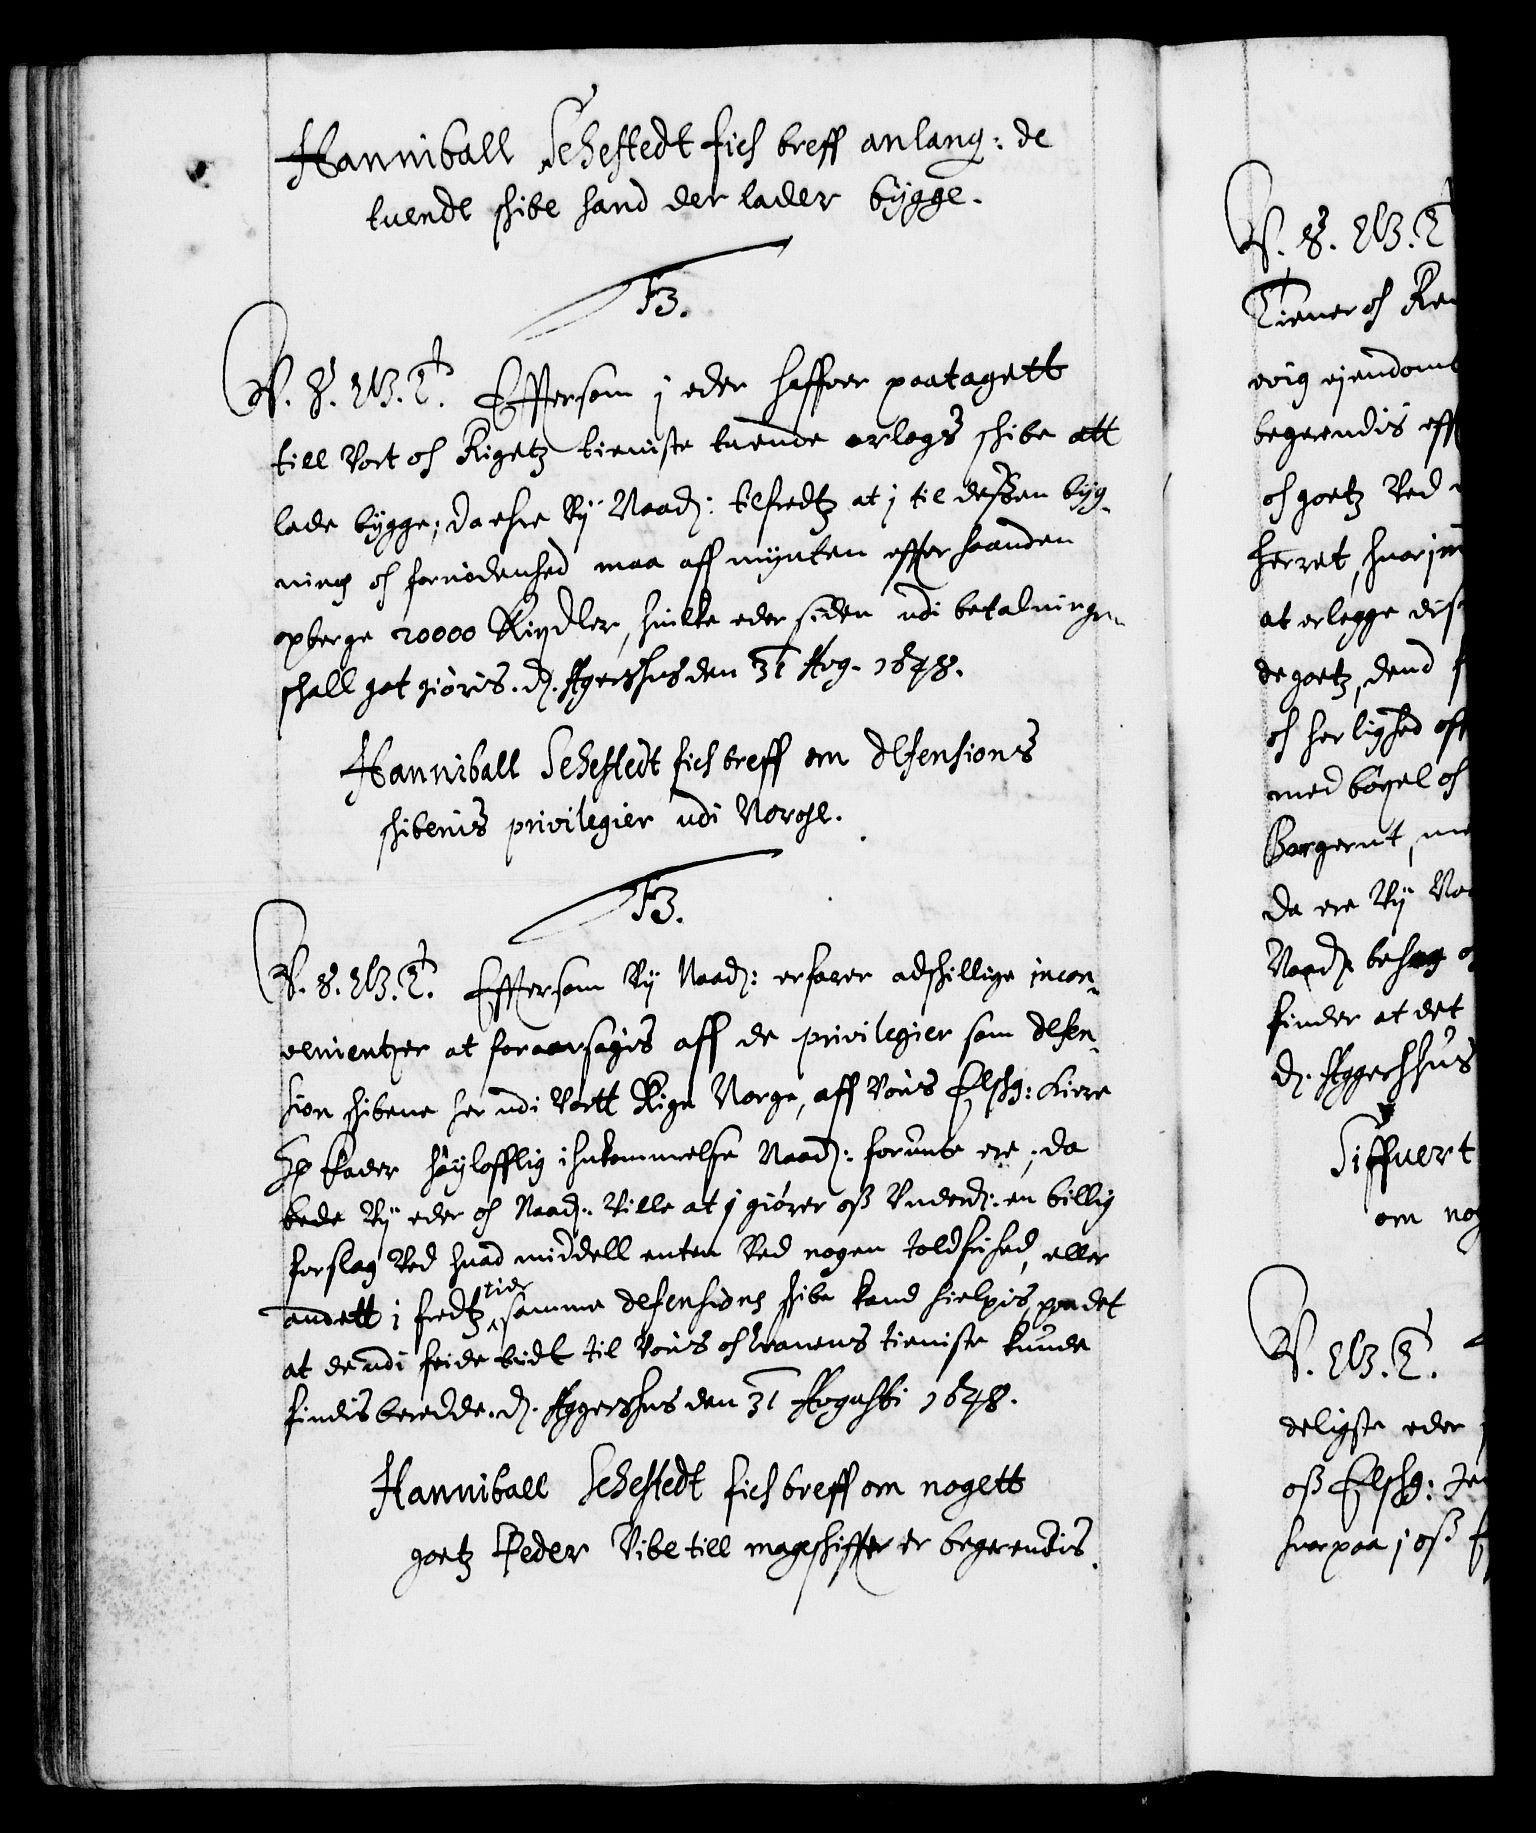 Hanniball Sehestedt fich breff anlang: de
tuende skibe hand der lader bygge.
F3.
V. S. G. V. G. T. Effttersom j eder haffver paatagett
till Vort och Rigetz tieniste tuende orlogs skibe att
lade bygge; da ehre Vy Naad: tilfredtz at j til dessen byg-
ning och fornødenhed maa aff mynten effter haanden
opberge 20000 Rixdler, huilke eder siden udi betalningen
schall got giøris. d. Agershus den 31 Aug. 1648.
Hanniball Sehestedt fich breff om defensions
skibenis privilegier udi Norge.
F3.
Effttersom Vy Naad: erfarer adskillige incon-
venientzer at foraarsagis aff de privilegier som defen-
sion skibene her udi Vortt Rige Norge, aff Voris Elschg: Kiere
H. Fader høylofflig ihukommelse Naad: forunte ere; da
bede Vy eder och Naad: Ville at j giører oss Underd: en billig
forslag Ved huad middell enten Ved nogen Toldfrihed, eller
andett i fredtz tider samme defensions skibe kand hielpis, paa det
at de udi feide tidt til Voris och Cronens tieniste kunde
findis beredde. d. Aggershus den 31 Augusti 1648.
Hanniball Sehestedt fich breff om nogett
goetz Peder Vibe till mageskiffte er begerendis.
Tiener och
evig ejendomb
begerendis eff
och goetz Ved
herret, huorim
at erlegge
de goetz, dend
och herlighed off
med bøxel och
Borgernt,
da ere Vy Na
Naad: behag
finder at det
d. Aggershus
Siffuert
om nog
deligste eder
oss Elschg:
huorpaa j oss